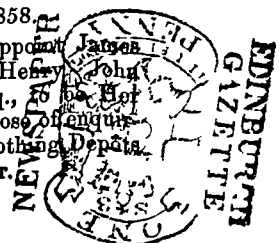 858.
ppoint James
Henry, John
., to be Her
ose of enquir-
othing Depôts
r.
NEWSPAPER
EDINBURGH
GAZETTE
ONE
PENNY